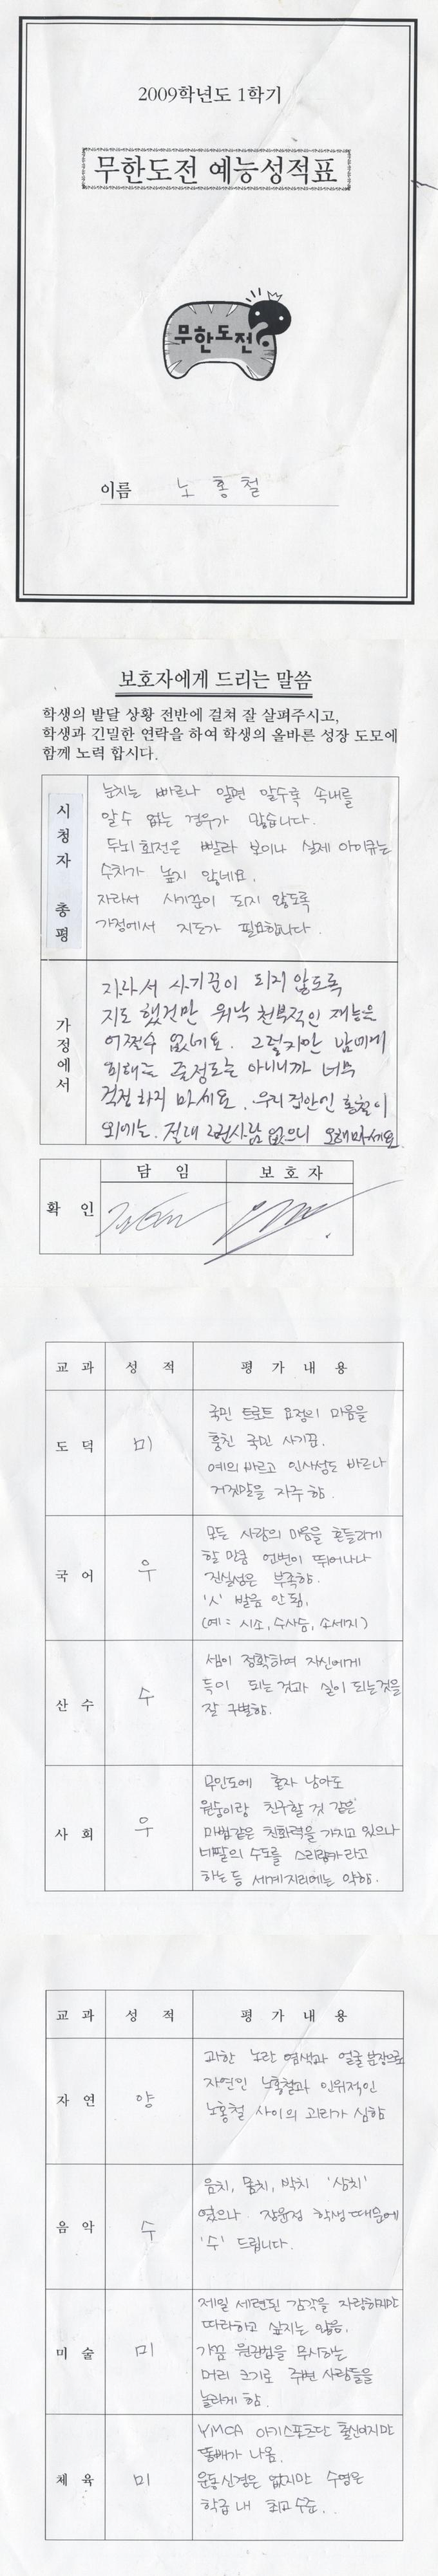 2009학년도 1학기
무한도전 예능성적표
무한도전?
이름 노홍철
보호자에게 드리는 말씀
학생의 발달 상황 전반에 걸쳐 잘 살펴주시고,
학생과 긴밀한 연락을 하여 학생의 올바른 성장 도모에
함께 노력 합시다.
시청자 총평
눈치는 빠르나 알면 알수록 속내를
알 수 없는 경우가 많습니다.
두뇌 회전은 빨라 보이나 실제 아이큐는
수치가 높지 않네요.
자라서 사기꾼이 되지 않도록
가정에서 지도가 필요합니다.
가정에서
자라서 사기꾼이 되지 않도록
지도 했건만 워낙 천부적인 재능은
어쩔수 없네요. 그렇지만 남에게
피해줄 정도는 아니니까 너무
걱정하지 마세요. 우리 집안엔 홍철이
외에는. 절대 그런사람 없으니 오해마세요
담 임 보 호 자
확 인
교 과 성 적 평 가 내 용
도 덕 미
국민 트로트 요정의 마음을
훔친 국민 사기꾼.
예의 바르고 인사성도 바르나
거짓말을 자주 함.
국 어 우
모든 사람의 마음을 흔들리게
할 만큼 언변이 뛰어나나
진실성은 부족함.
'ㅅ' 발음 안됨.
(예: 시소, 수사슴, 소세지)
산 수 수
셈이 정확하여 자신에게
득이 되는 것과 실이 되는것을
잘 구별함.
사 회 우
무인도에 혼자 남아도
원숭이랑 친구할 것 같은
마법같은 친화력을 가지고 있으나
네팔의 수도를 스리랑카라고
하는 등 세계지리에는 약함.
교 과 성 적 평 가 내 용
자 연 양
과한 노란 염색과 얼굴 분장으로
자연인 노홍철과 인위적인
노홍철 사이의 괴리가 심함
음 악 수
음치, 몸치, 박치 '삼치'
였으나 장윤정 학생 때문에
'수' 드립니다.
미 술 미
제일 세련된 감각을 자랑하지만
따라하고 싶지는 않음.
가끔 원근법을 무시하는
머리 크기로 주변 사람들을
놀라게 함.
체 육 미
YMCA 아기스포츠단 출신이지만
똥배가 나옴.
운동신경은 없지만 수영은
학급 내 최고 수준.